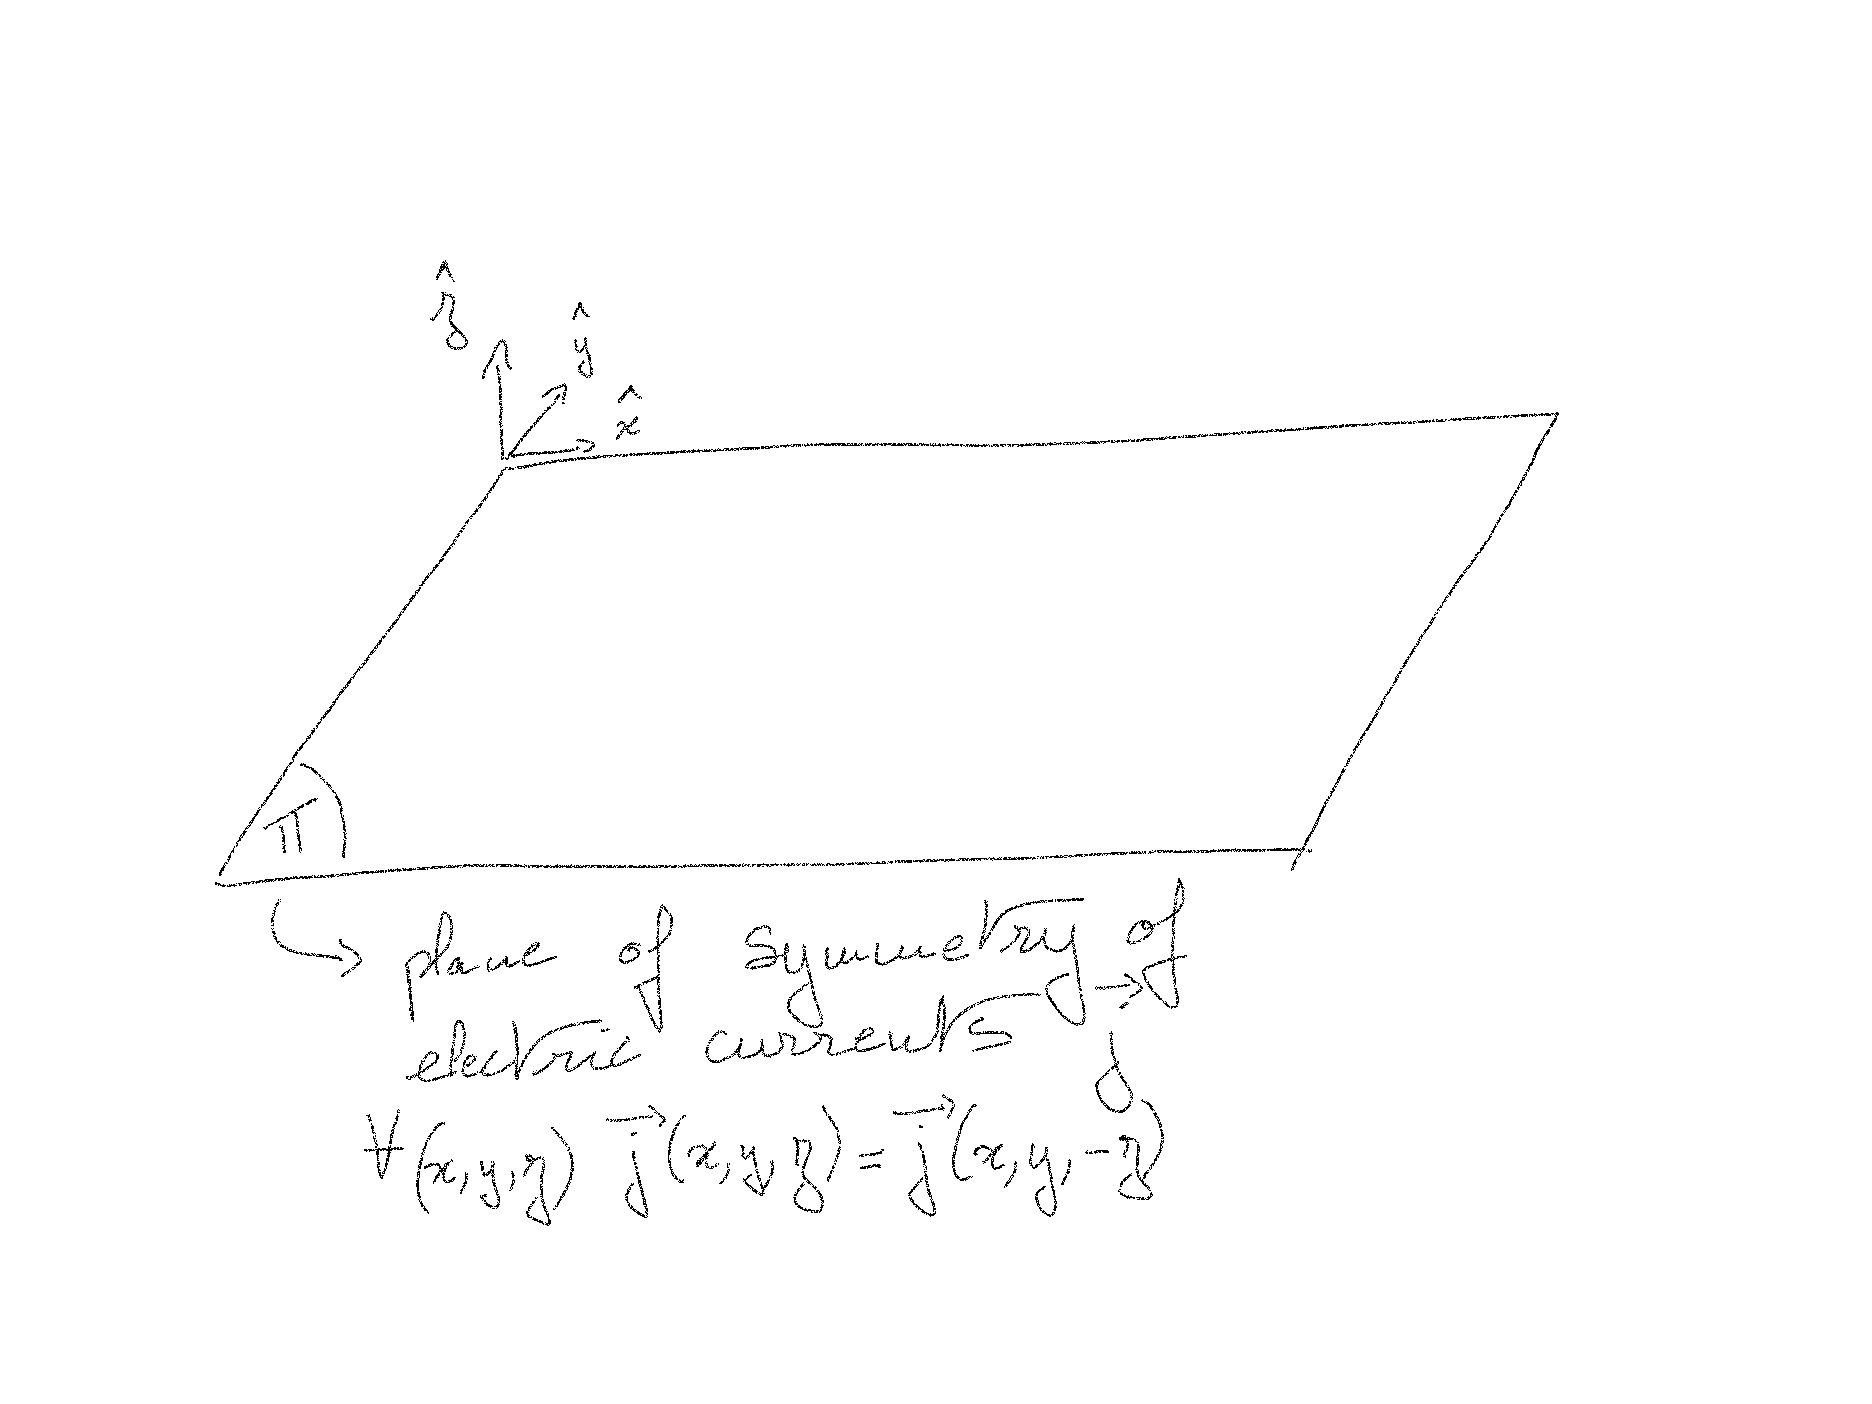 ẑ
ŷ
x̂
π
↳ plane of symmetry of
electric currents j⃗
∀(x,y,z) j⃗(x,y,z) = j⃗(x,y,-z)